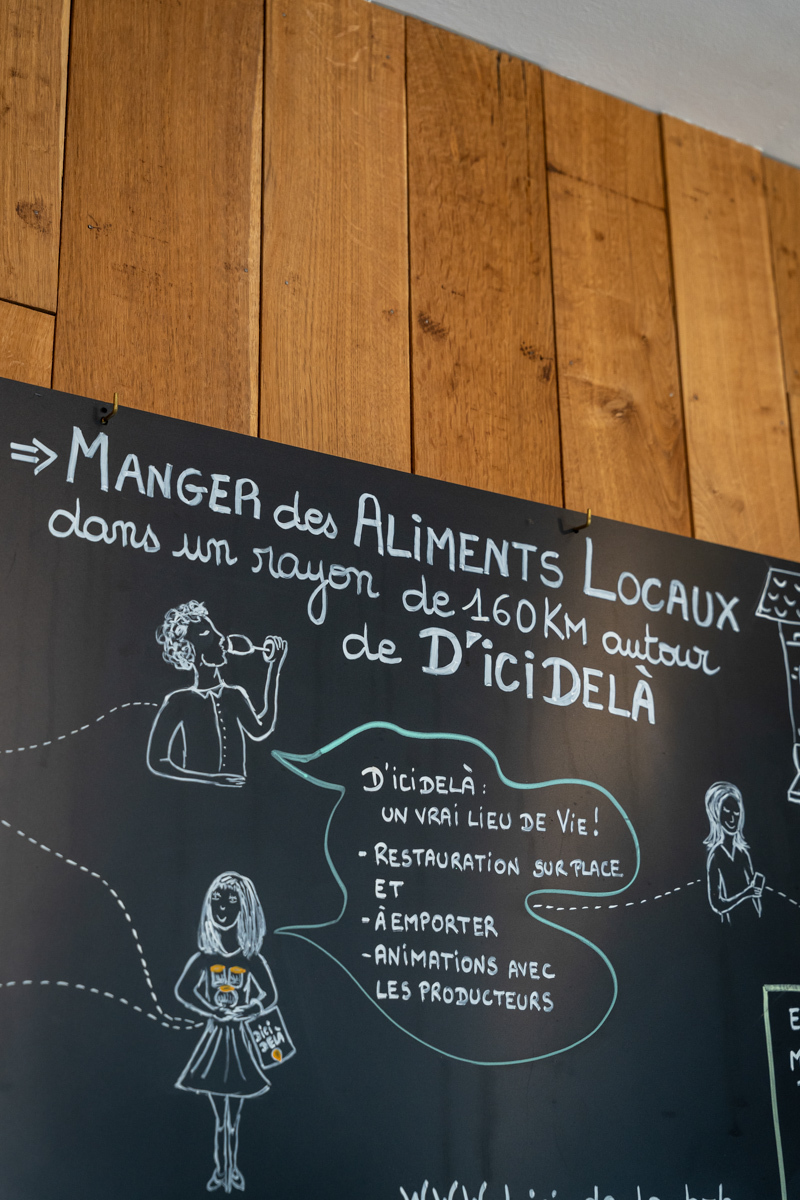 ⇒ MANGER des ALIMENTS LOCAUX
dans un rayon de 160KM autour
de D'iCiDELÀ
D'iCiDELÀ :
UN VRAI LIEU DE Vie !
- RESTAURATION SUR PLACE
ET
- À EMPORTER
- ANIMATIONS AVEC
LES PRODUCTEURS
D'ICI
DELÀ